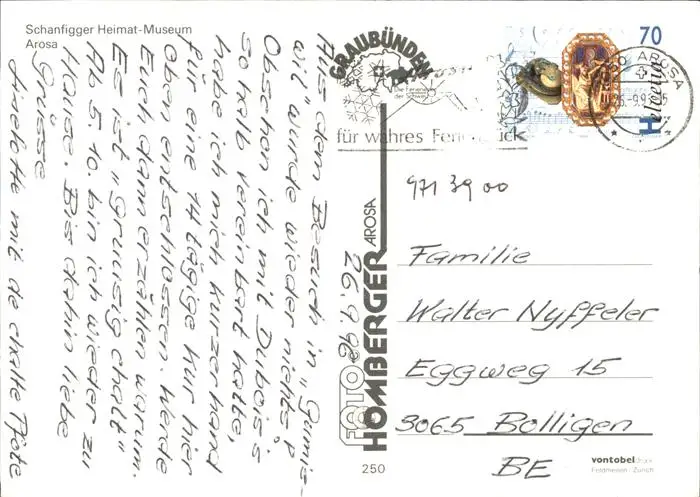 Schanfigger Heimat-Museum
Arosa
Aus dem Besuch in "Gumis-
wil" wurde wieder nichts,
Obschon ich mit Dubois's
so halb vereinbart hatte,
habe ich mich kurzerhand
für eine 14 tägige Kur hier
oben entschlossen. Werde
Euch dann erzählen warum.
Es ist "gruusig chalt"
Ab 5.10. bin ich wieder zu
Hause. Bis dahin liebe
Grüsse
mit de chalte Pfote
26.9.96
FOTO
HOMBERGER
AROSA
250
GRAUBÜNDEN
Die Ferienecke
der Schweiz
für wahres Ferienglück
70
Helvetia
AROSA
26.-9.9
971 39 00
Familie
Walter Nyffeler
Eggweg 15
3065 Bolligen
BE
vontobeldruck
Feldmeilen / Zürich